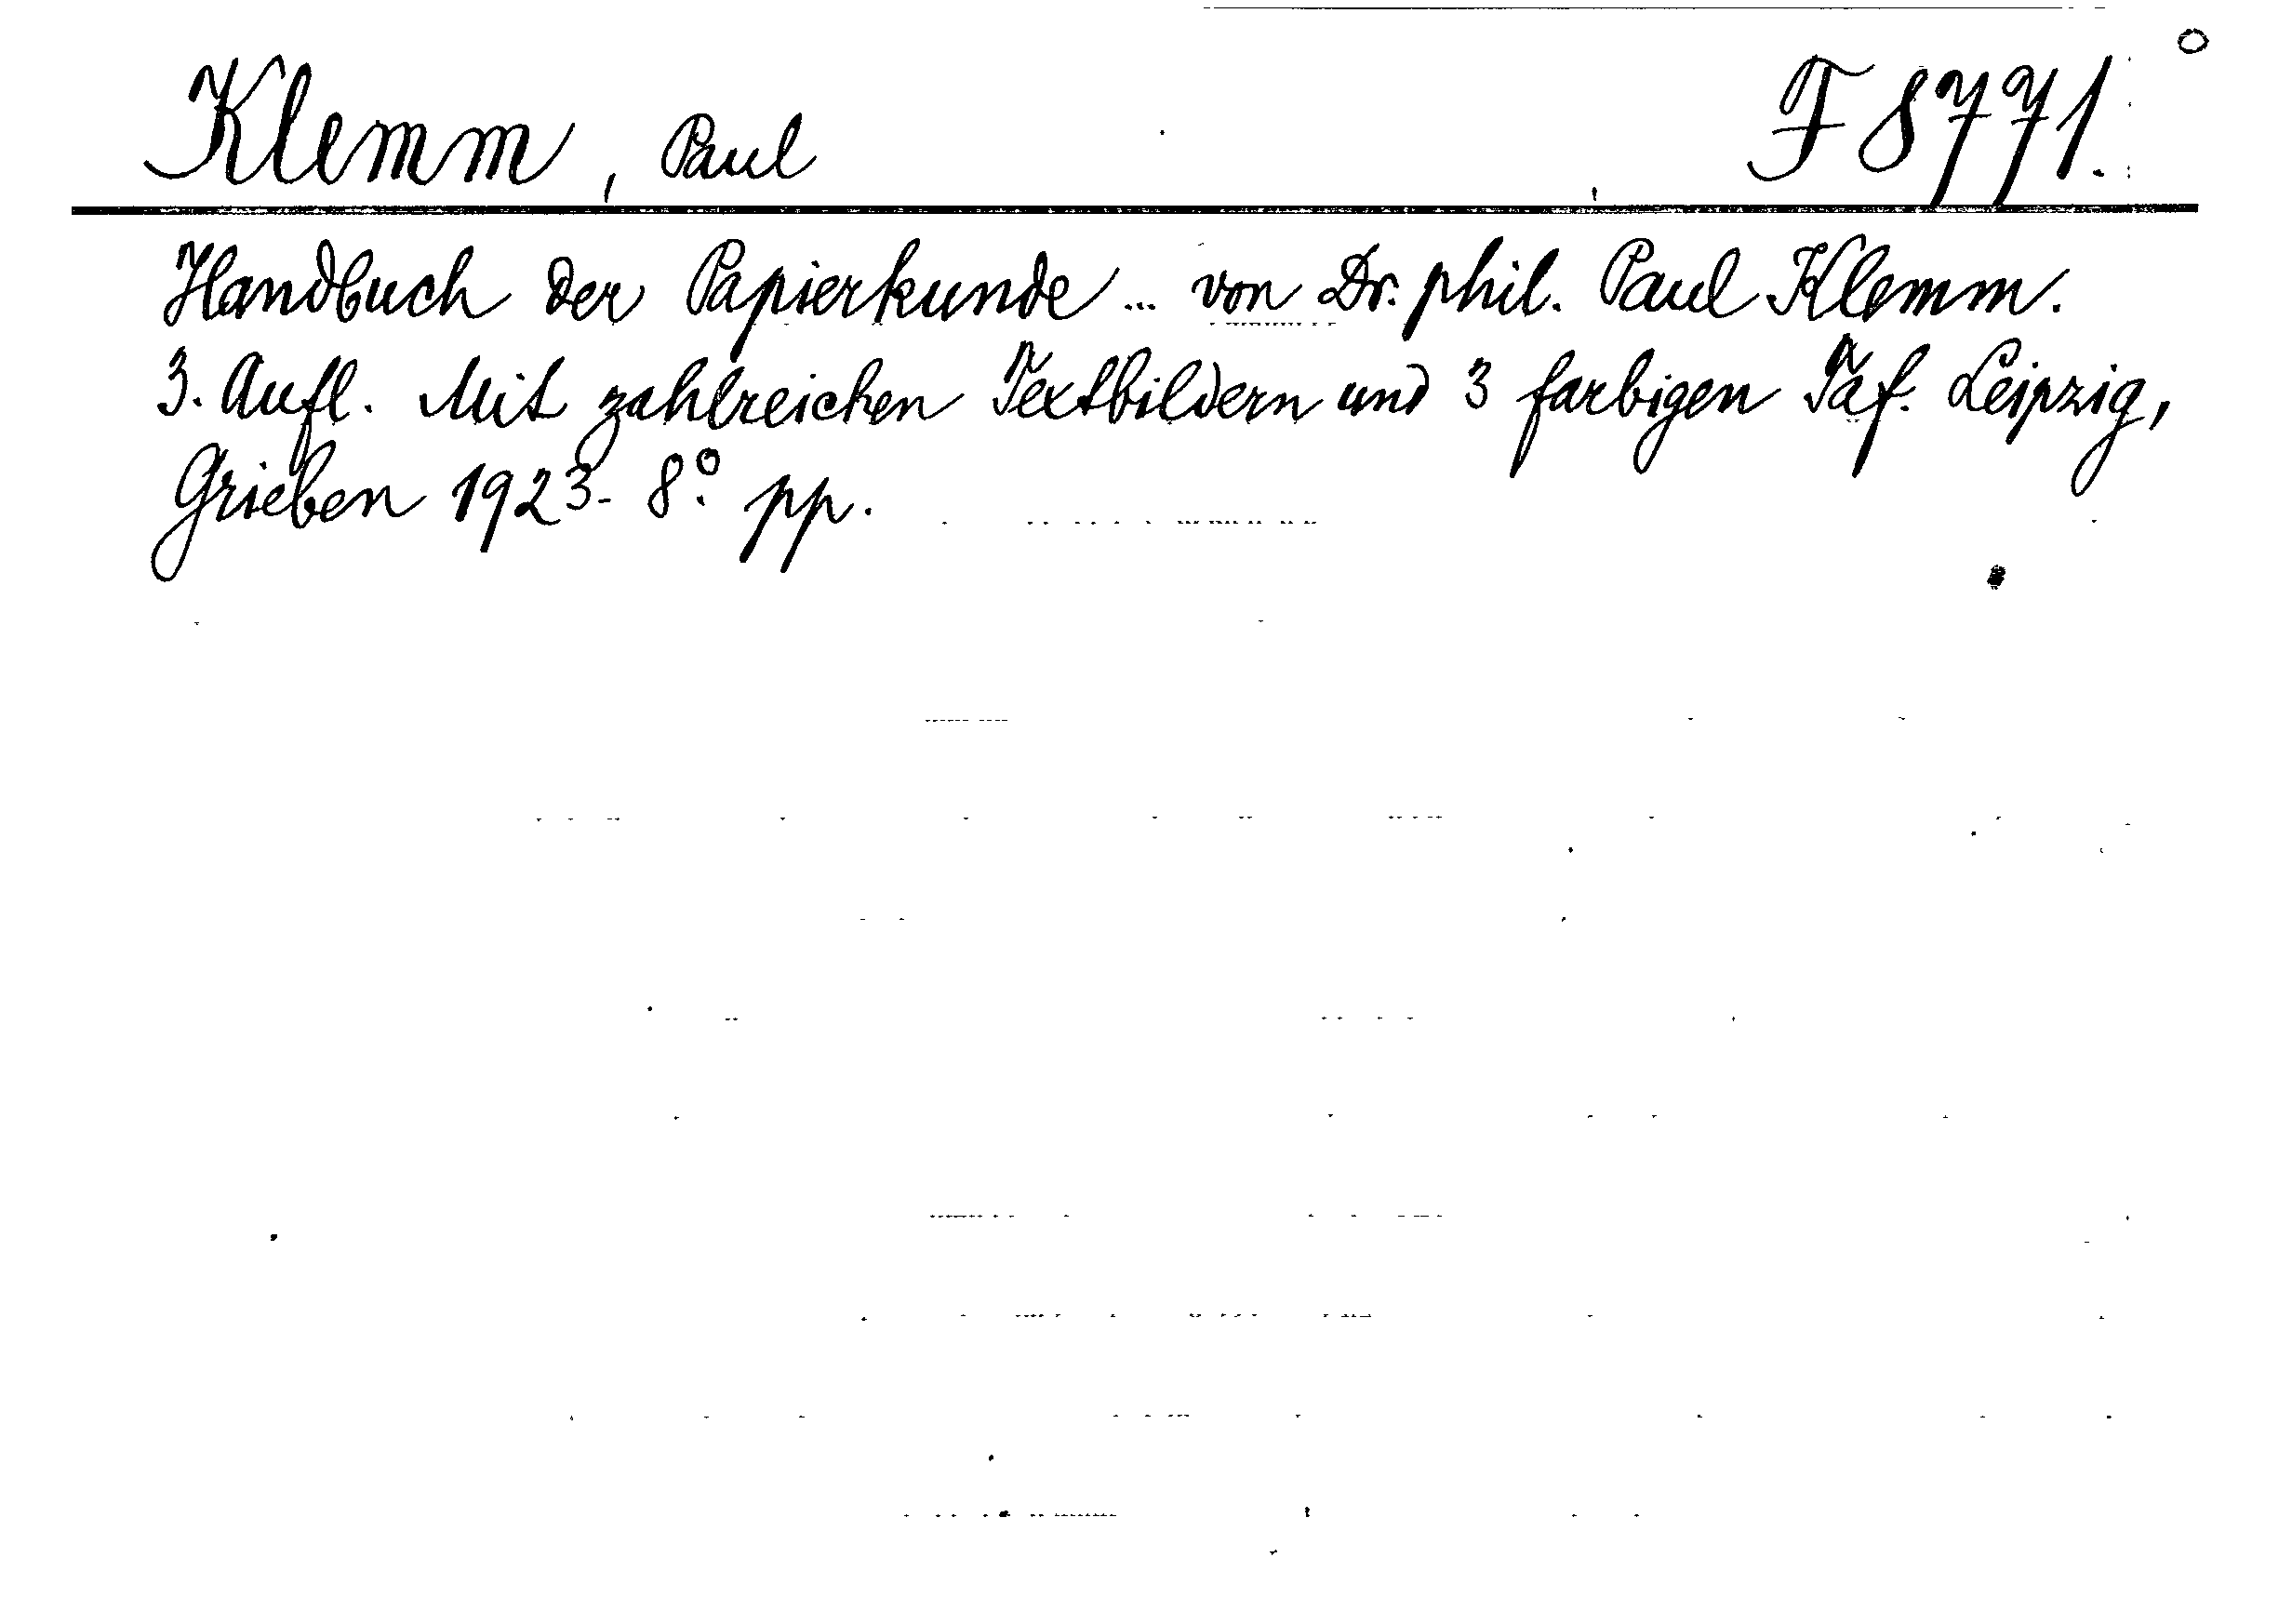 Klemm, Paul F 8771.
Handbuch der Papierkunde ... von Dr. phil. Paul Klemm.
3. Aufl. Mit zahlreichen Textbildern und 3 farbigen Taf. Leipzig,
Grieben 1923 - 8° pp.